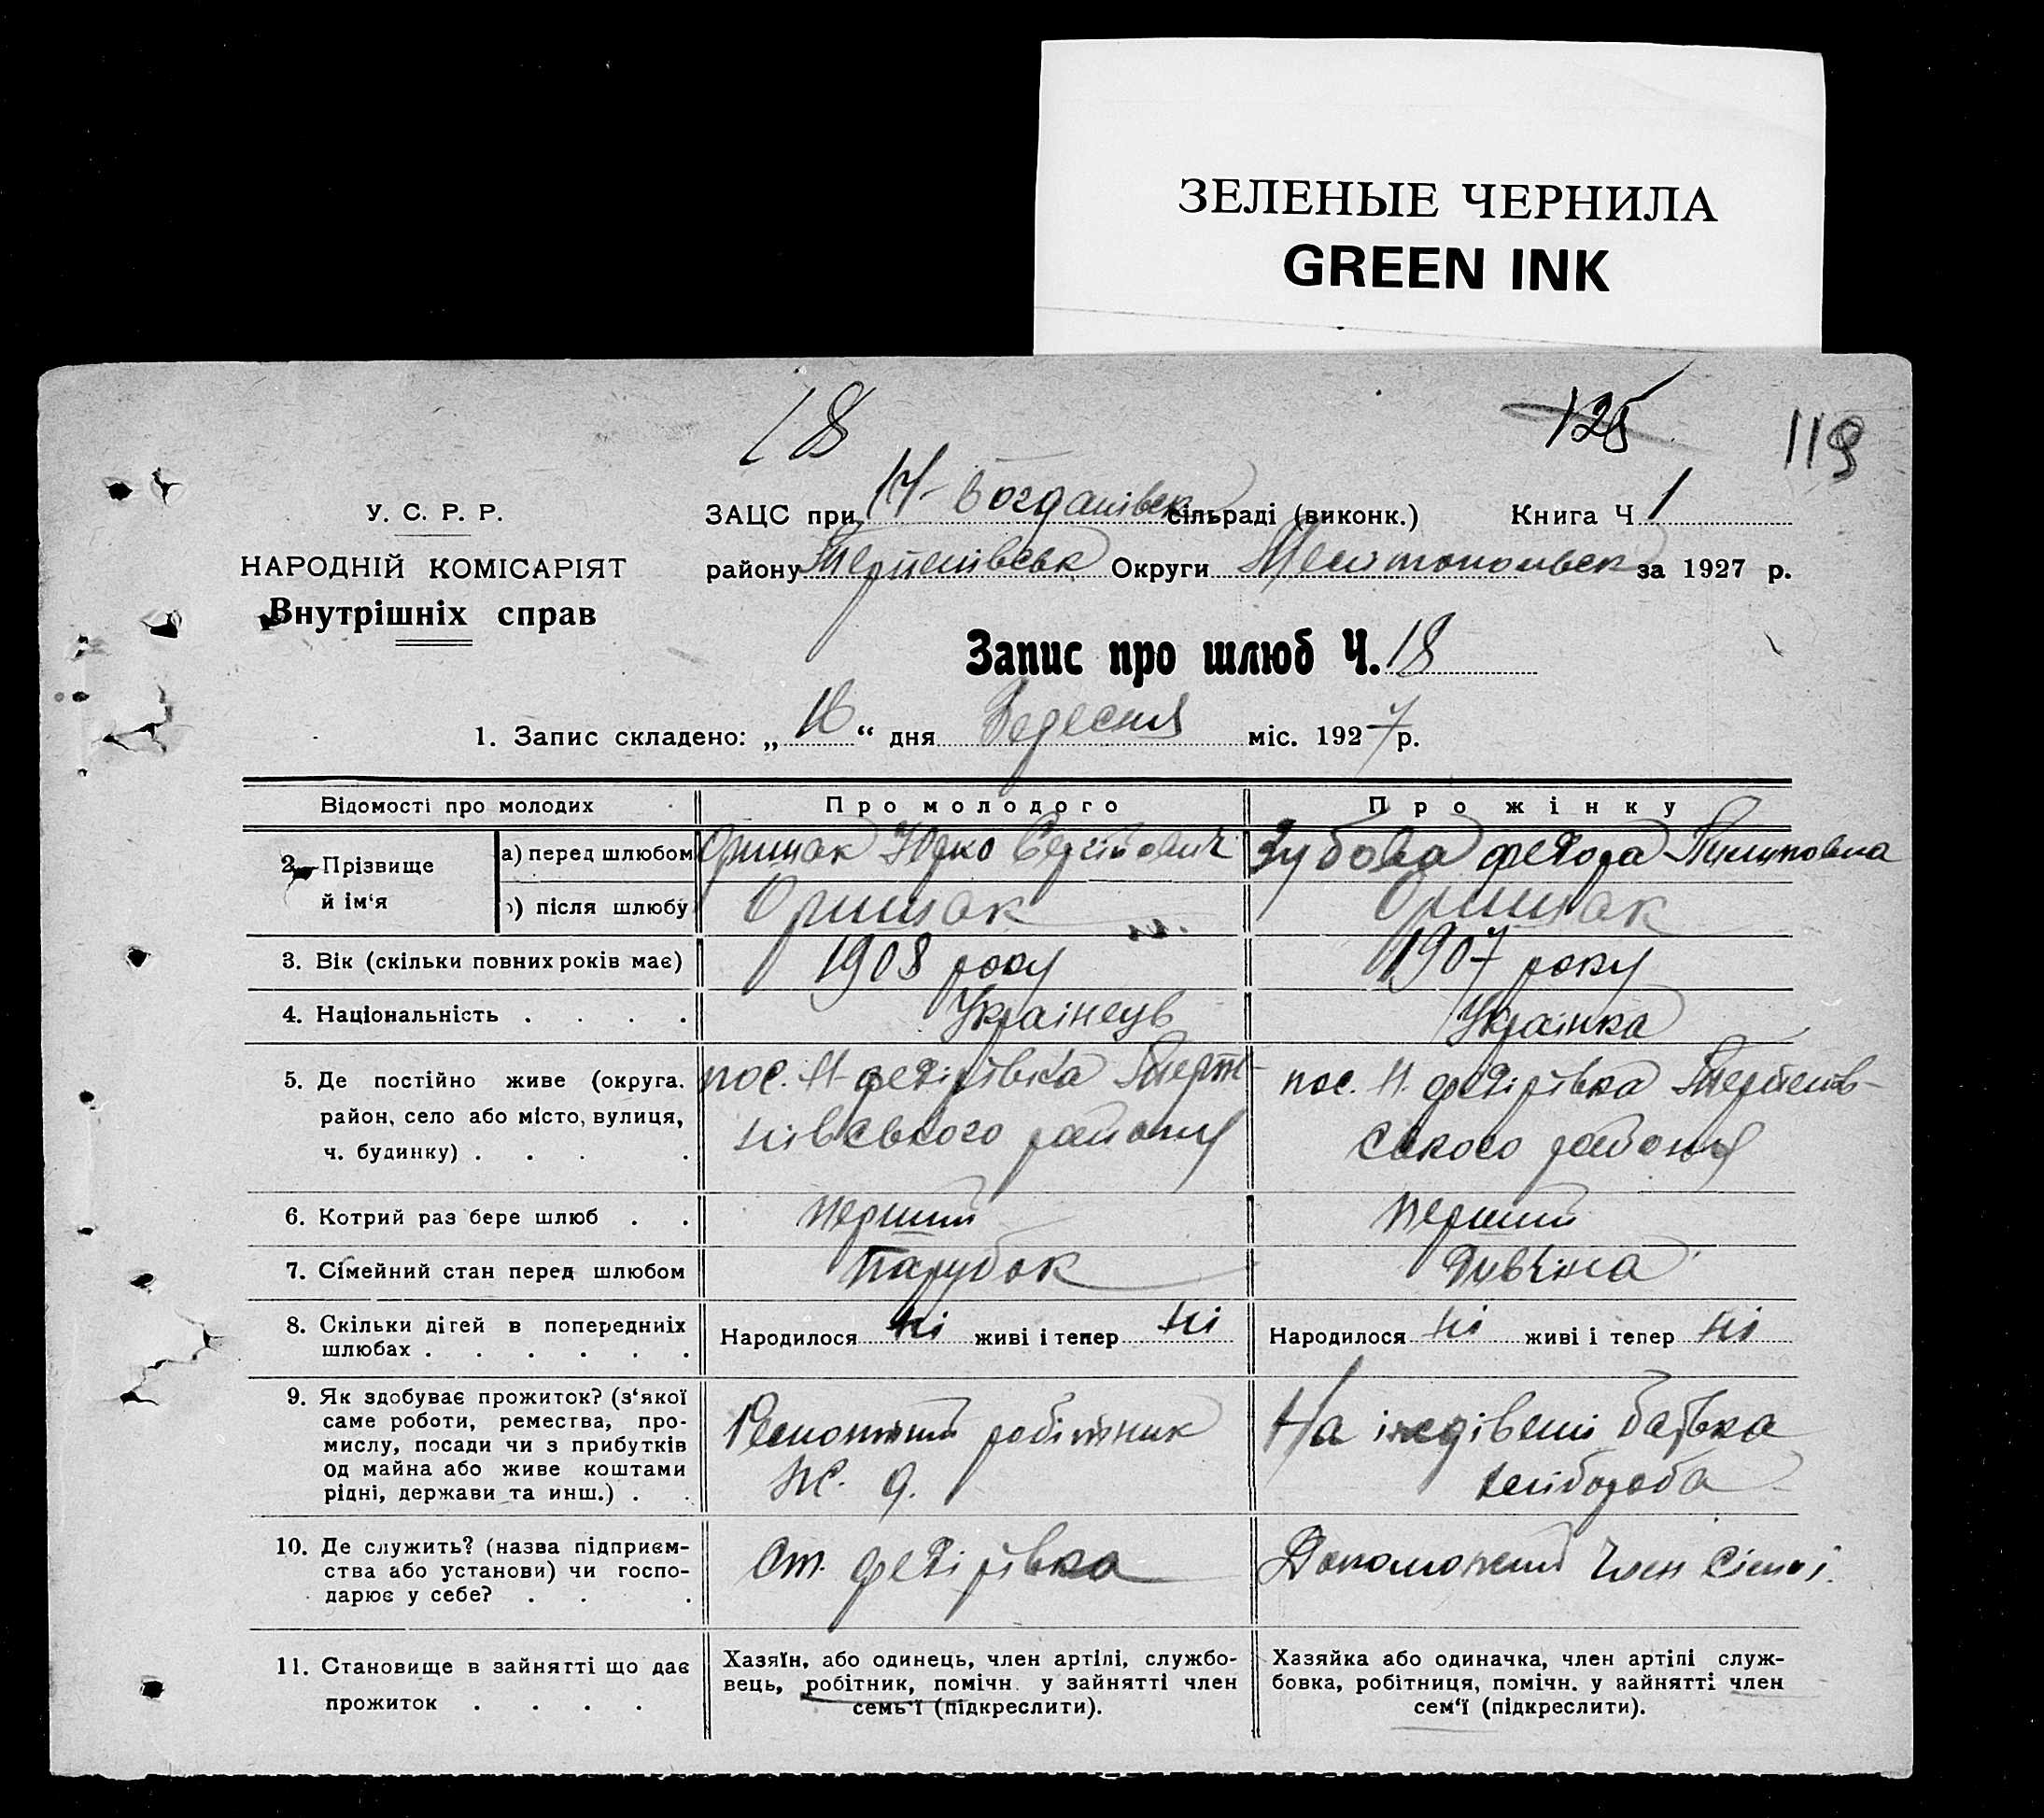 ЗЕЛЕНЫЕ ЧЕРНИЛА
GREEN INK
18
125
119
У. С. Р. Р.
НАРОДНІЙ КОМІСАРІЯТ
Внутрішніх справ
ЗАЦС при Н-Богданівск сільраді (виконк.) Книга Ч 1
району Терпенівськ Округи Мелітопольск за 1927 р.
Запис про шлюб Ч. 18
1. Запис складено: „ 16 “ дня Вересня міс. 1927 р.
Відомості про молодих
Про молодого
Про жінку
2. Прізвище й ім‘я
а) перед шлюбом
Оришак Юрко Сергійович
Зубова Федора Пилиповна
б) після шлюбу
Оришак
Оришак
3. Вік (скільки повних років має)
1908 року
1907 року
4. Національність . . . .
Українець
Українка
5. Де постійно живе (округа.
район, село або місто, вулиця,
ч. будинку) . . . .
пос. Н-Федірівка Терпе-
нівського району
пос. Н. Федірівка Терпенів-
ського району
6. Котрий раз бере шлюб . .
перший
перший
7. Сімейний стан перед шлюбом
Парубок
Дивчина
8. Скільки дітей в попередниіх
шлюбах . . . . . .
Народилося ні живі і тепер ні
Народилося ні живі і тепер ні
9. Як здобуває прожиток? (з‘якої
саме роботи, ремества, про-
мислу, посади чи з прибутків
од майна або живе коштами
рідні, держави та инш.) . .
Ремонтний робітник
ж. д.
На іждівені батька
хлібороба
10. Де служить? (назва підприєм-
ства або установи) чи госпо-
дарює у себе? . . .
Ст. Федірівка
Допоможний член сімї.
11. Становище в зайнятті що дає
прожиток . . . .
Хазяїн, або одинець, член артілі, службо-
вець, робітник, помічн. у зайнятті член
семь‘ї (підкреслити).
Хазяйка або одиначка, член артілі служ-
бовка, робітниця, помічн. у зайнятті член
сем‘ї (підкреслити).